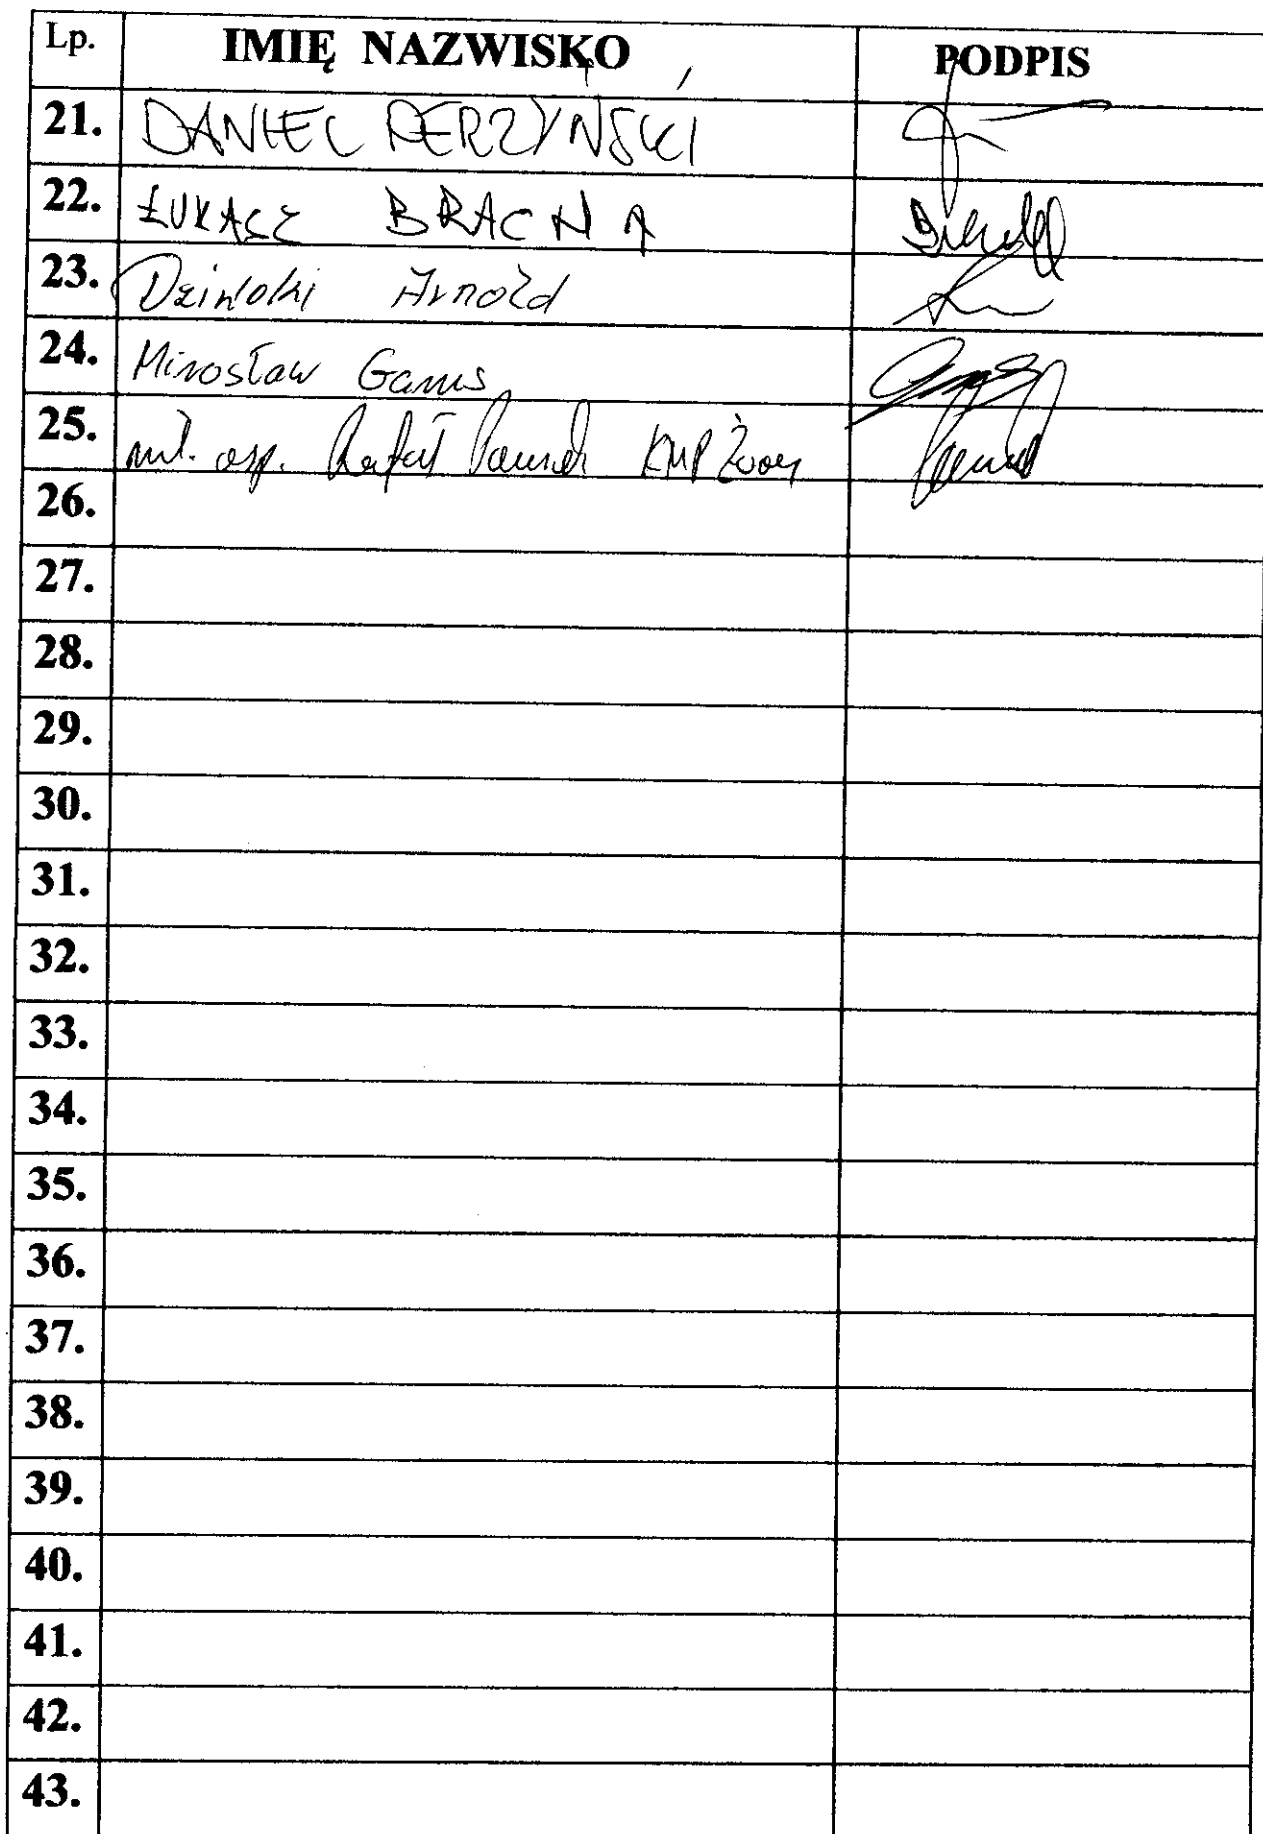 Lp. IMIĘ NAZWISKO PODPIS
21. DANIEL PERZYŃSKI
22. ŁUKASZ BRACHA
23. Arnold
24. Mirosław Gamus
25. mł. asp. Rafał KMP Żory
26.
27.
28.
29.
30.
31.
32.
33.
34.
35.
36.
37.
38.
39.
40.
41.
42.
43.